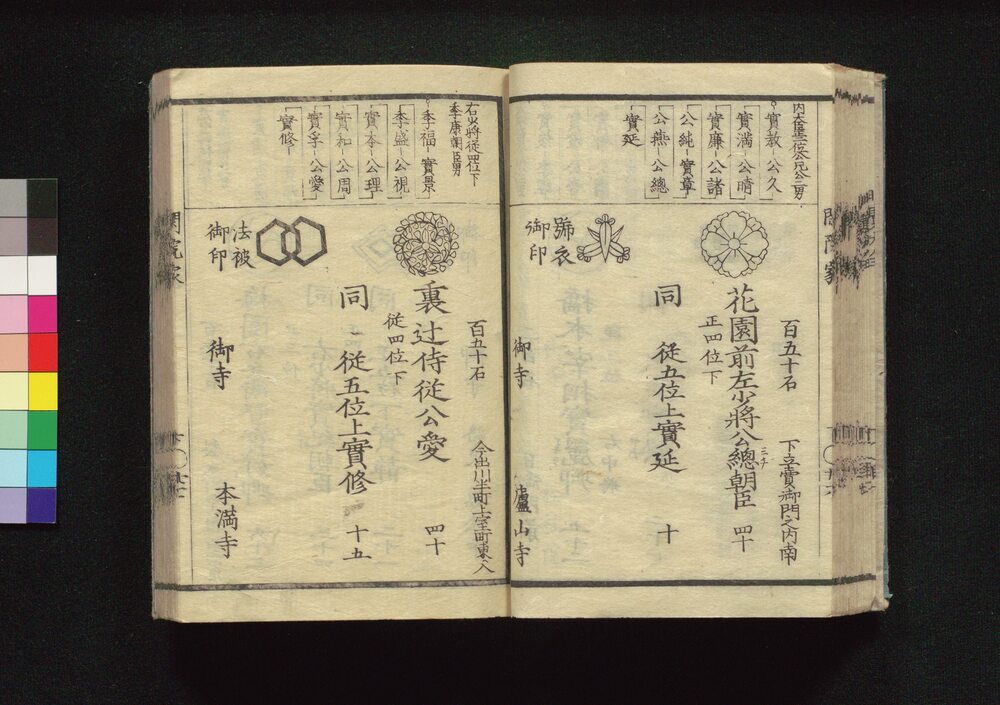 内大臣正三位公兄公二男
實教 公久
實満 公晴
實廉 公諸
公純 實章
公燕 公總
實延
百五十石 下立賣御門之内南
花園前左少將公總朝臣 四十
正四位下
同 從五位上實延 十
號衣
御印
御寺 廬山寺
右少將從四位下
季康朝臣男
季福 實景
季盛 公視
實本 公理
實和 公周
實孚 公愛
實修
百五十石 今出川半町上室町東ヘ入
裏辻侍從公愛 四十
從四位下
同 從五位上實修 十五
法被
御印
御寺 本満寺
閑院家